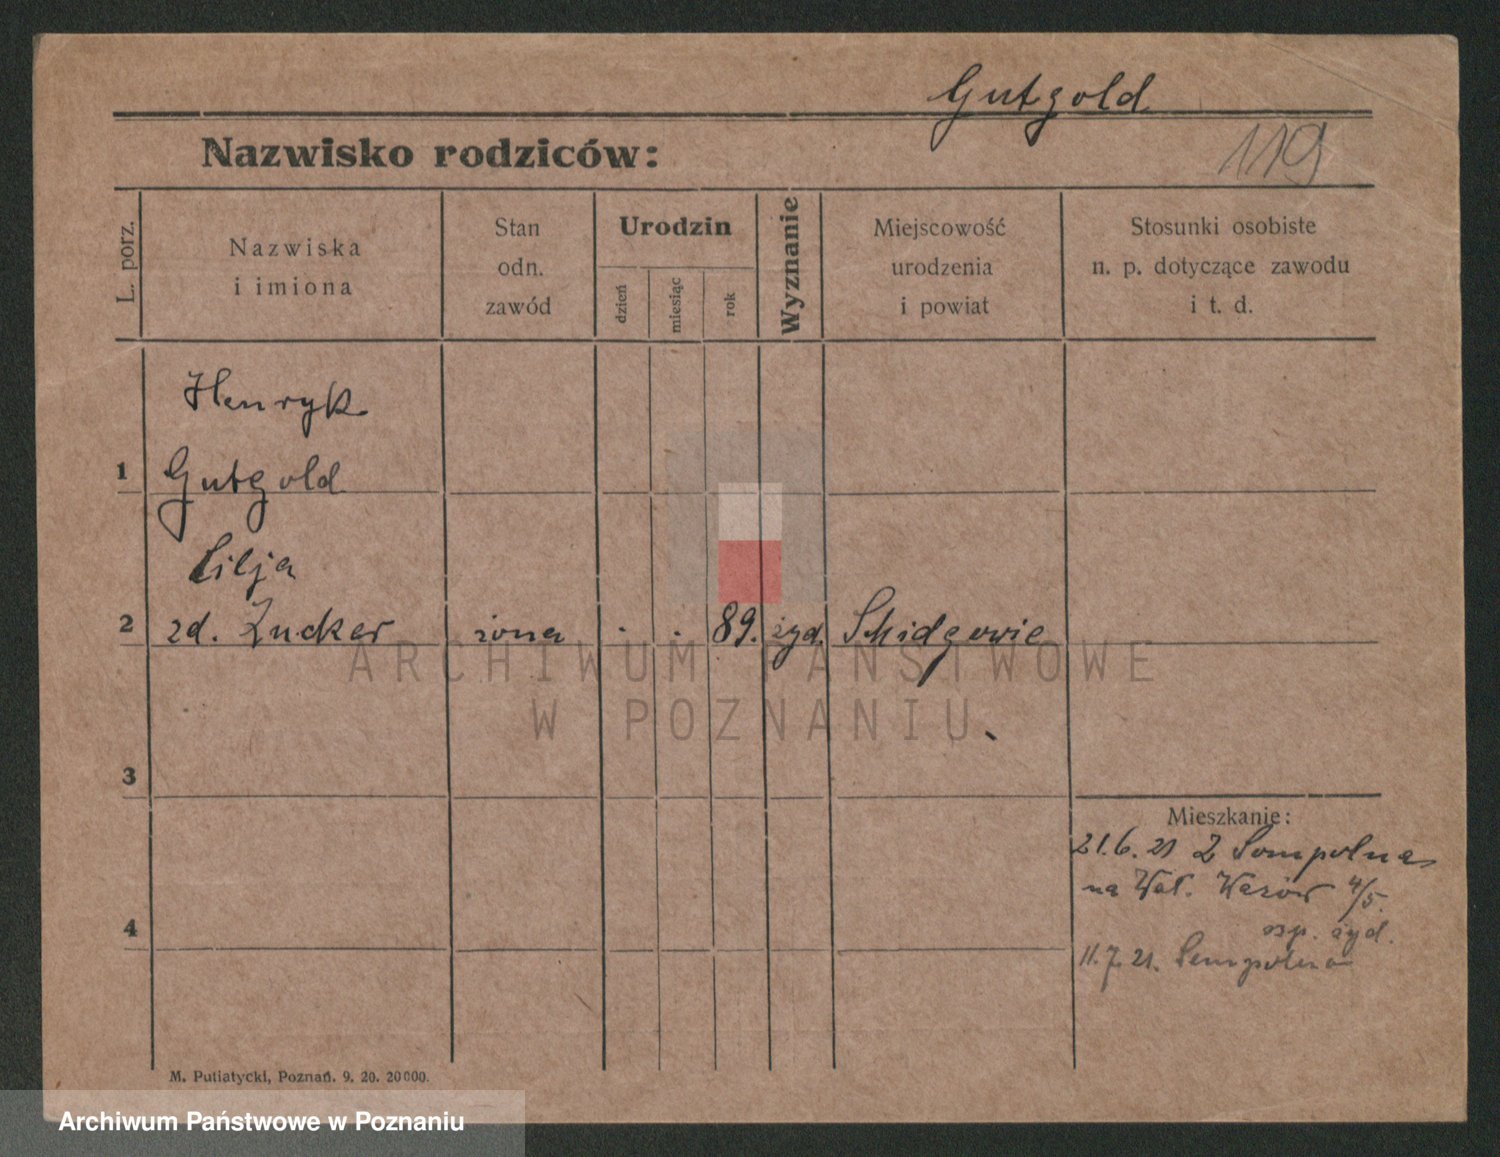 Gutgold
119
Nazwisko rodziców:
L. porz.
Nazwiska
i imiona
Stan
odn.
zawód
Urodzin
dzień
miesiąc
rok
Wyznanie
Miejscowość
urodzenia
i powiat
Stosunki osobiste
n. p. dotyczące zawodu
i t. d.
Henryk
1 Gutgold
Lilja
2 zd. Zucker żona . . 89. żyd.
3
Mieszkanie:
21.6.21 Z Sompolna
na Wał. Wazów 4/5.
żyd.
4
11.7.21. Sompolna
M. Putiatycki, Poznań. 9. 20. 20000.
ARCHIWUM PAŃSTWOWE
W POZNANIU
Archiwum Państwowe w Poznaniu